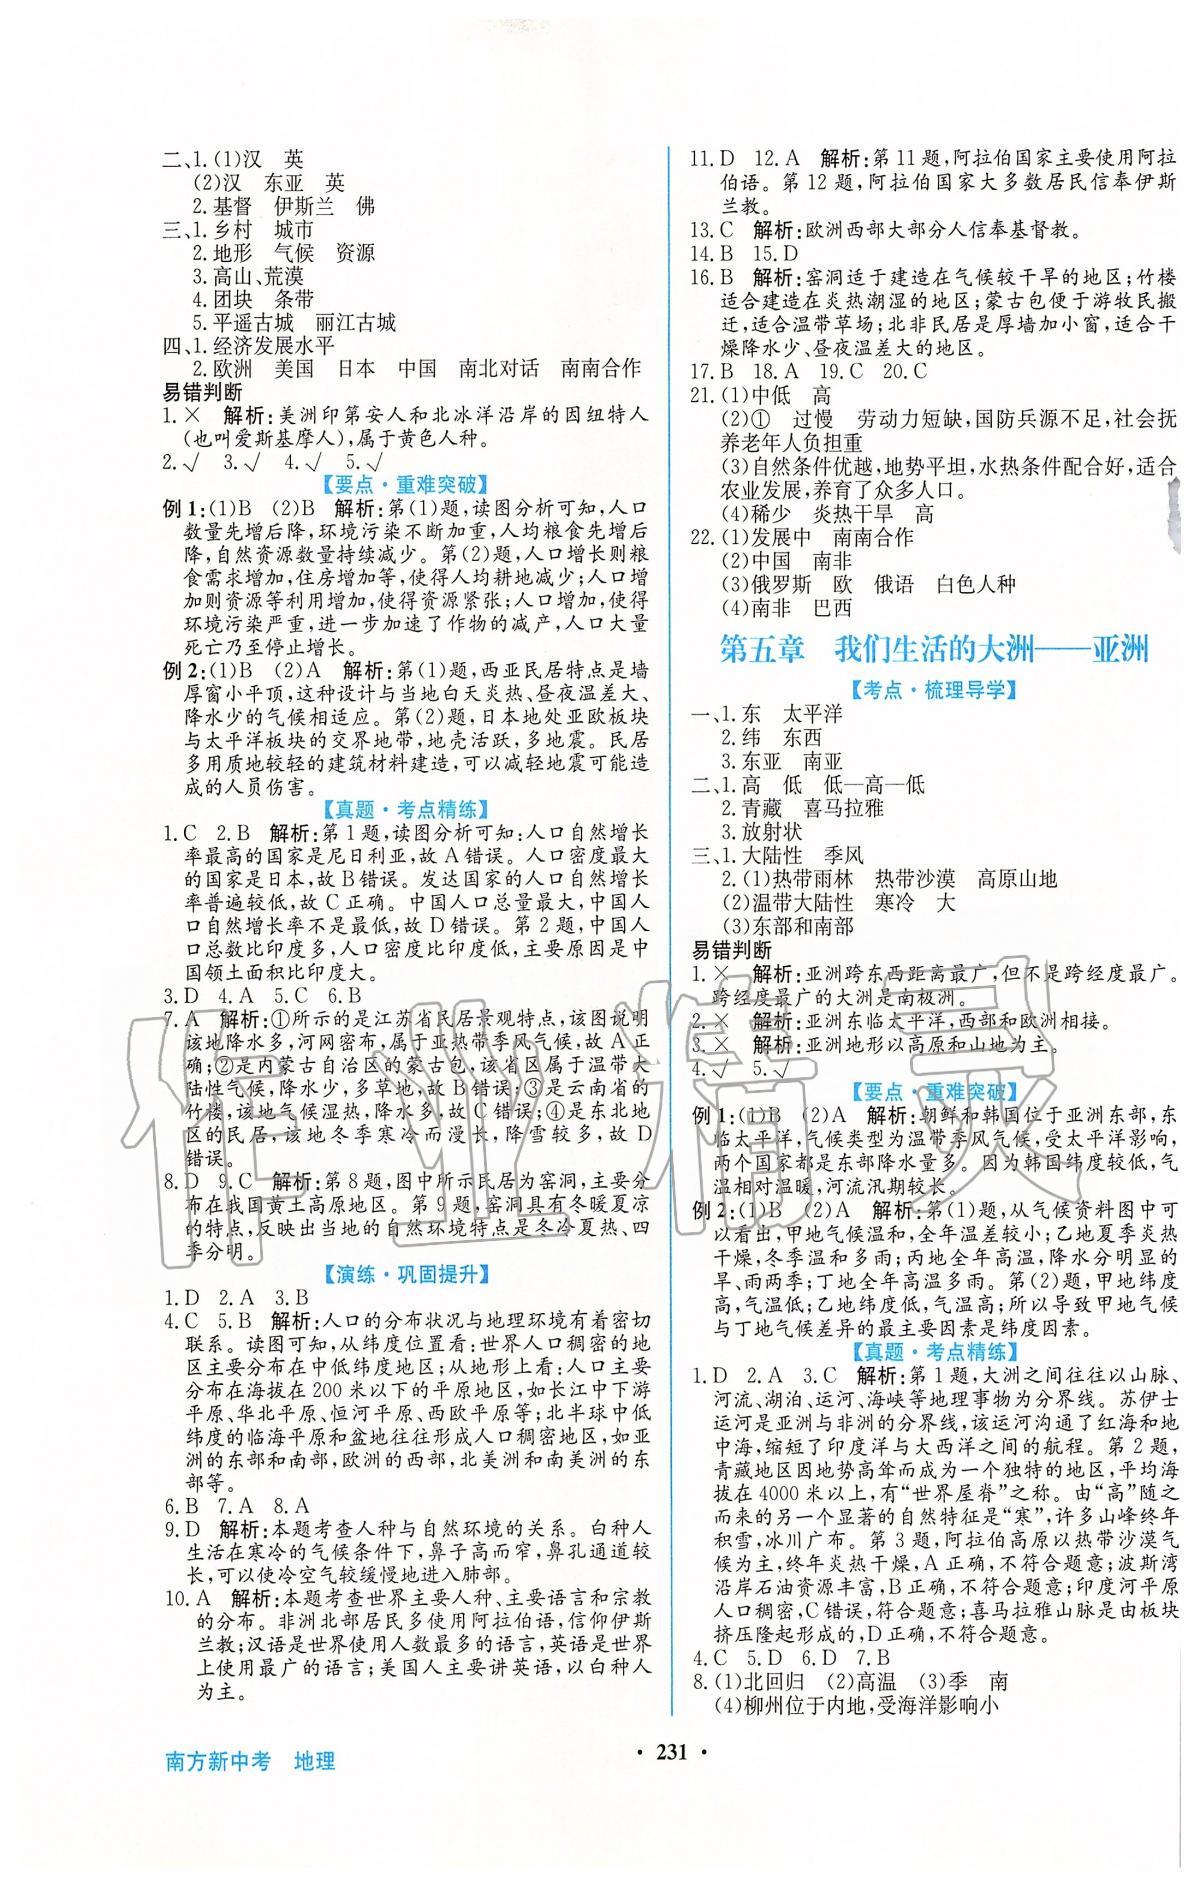 二、1.(1)汉　英
(2)汉　东亚　英
2.基督　伊斯兰　佛
三、1.乡村　城市
2.地形　气候　资源
3.高山、荒漠
4.团块　条带
5.平遥古城　丽江古城
四、1.经济发展水平
2.欧洲　美国　日本　中国　南北对话　南南合作
易错判断
1.×　解析:美洲印第安人和北冰洋沿岸的因纽特人
(也叫爱斯基摩人),属于黄色人种。
2.√　3.√　4.√　5.√
【要点·重难突破】
例1:(1)B　(2)B　解析:第(1)题,读图分析可知,人口
数量先增后降,环境污染不断加重,人均粮食先增后
降,自然资源数量持续减少。第(2)题,人口增长则粮
食需求增加,住房增加等,使得人均耕地减少;人口增
加则资源等利用增加,使得资源紧张;人口增加,使得
环境污染严重,进一步加速了作物的减产,人口大量
死亡乃至停止增长。
例2:(1)B　(2)A　解析:第(1)题,西亚民居特点是墙
厚窗小平顶,这种设计与当地白天炎热、昼夜温差大、
降水少的气候相适应。第(2)题,日本地处亚欧板块
与太平洋板块的交界地带,地壳活跃,多地震。民居
多用质地较轻的建筑材料建造,可以减轻地震可能造
成的人员伤害。
【真题·考点精练】
1.C　2.B　解析:第1题,读图分析可知:人口自然增长
率最高的国家是尼日利亚,故A错误。人口密度最大
的国家是日本,故B错误。发达国家的人口自然增长
率普遍较低,故C正确。中国人口总量最大,中国人
口自然增长率不是最低,故D错误。第2题,中国人
口总数比印度多,人口密度比印度低,主要原因是中
国领土面积比印度大。
3.D　4.A　5.C　6.B
7.A　解析:①所示的是江苏省民居景观特点,该图说明
该地降水多,河网密布,属于亚热带季风气候,故A正
确;②是内蒙古自治区的蒙古包,该省区属于温带大
陆性气候,降水少,多草地,故B错误;③是云南省的
竹楼,该地气候湿热,降水多,故C错误;④是东北地
区的民居,该地冬季寒冷而漫长,降雪较多,故D
错误。
8.D　9.C　解析:第8题,图中所示民居为窑洞,主要分
布在我国黄土高原地区。第9题,窑洞具有冬暖夏凉
的特点,反映出当地的自然环境特点是冬冷夏热、四
季分明。
【演练·巩固提升】
1.D　2.A　3.B
4.C　5.B　解析:人口的分布状况与地理环境有着密切
联系。读图可知,从纬度位置看:世界人口稠密的地
区主要分布在中低纬度地区;从地形上看:人口主要
分布在海拔在200米以下的平原地区,如长江中下游
平原、华北平原、恒河平原、西欧平原等;北半球中低
纬度的临海平原和盆地往往形成人口稠密区,如亚
洲的东部和南部,欧洲的西部,北美洲和南美洲的东
部等。
6.B　7.A　8.A
9.D　解析:本题考查人种与自然环境的关系。白种人
生活在寒冷的气候条件下,鼻子高而窄,鼻孔通道较
长,可以使冷空气较缓慢地进入肺部。
10.A　解析:本题考查世界主要人种、主要语言和宗教
的分布。非洲北部居民多使用阿拉伯语,信仰伊斯
兰教;汉语是世界使用人数最多的语言,英语是世界
上使用最广的语言;美国人主要讲英语,以白种人
为主。
11.D　12.A　解析:第11题,阿拉伯国家主要使用阿拉
伯语。第12题,阿拉伯国家大多数居民信奉伊斯
兰教。
13.C　解析:欧洲西部大部分人信奉基督教。
14.B　15.D
16.B　解析:窑洞适于建造在气候较干旱的地区;竹楼
适合建造在炎热潮湿的地区;蒙古包便于游牧民搬
迁,适合温带草场;北非民居是厚墙加小窗,适合干
燥降水少、昼夜温差大的地区。
17.B　18.A　19.C　20.C
21.(1)中低　高
(2)①　过慢　劳动力短缺,国防兵源不足,社会抚
养老年人负担重
(3)自然条件优越,地势平坦,水热条件配合好,适合
农业发展,养育了众多人口。
(4)稀少　炎热干旱　高
22.(1)发展中　南南合作
(2)中国　南非
(3)俄罗斯　欧　俄语　白色人种
(4)南非　巴西
第五章　我们生活的大洲——亚洲
【考点·梳理导学】
一、1.东　太平洋
2.纬　东西
3.东亚　南亚
二、1.高　低　低—高—低
2.青藏　喜马拉雅
3.放射状
三、1.大陆性　季风
2.(1)热带雨林　热带沙漠　高原山地
(2)温带大陆性　寒冷　大
(3)东部和南部
易错判断
1.×　解析:亚洲跨东西距离最广,但不是跨经度最广。
跨经度最广的大洲是南极洲。
2.×　解析:亚洲东临太平洋,西部和欧洲相接。
3.×　解析:亚洲地形以高原和山地为主。
4.√　5.√
【要点·重难突破】
例1:(1)B　(2)A　解析:朝鲜和韩国位于亚洲东部,东
临太平洋,气候类型为温带季风气候,受太平洋影响,
两个国家都是东部降水量多。因为韩国纬度较低,气
温相对温暖,河流汛期较长。
例2:(1)B　(2)A　解析:第(1)题,从气候资料图中可
以看出,甲地气候温和,全年温差较小;乙地夏季炎热
干燥,冬季温和多雨;丙地全年高温,降水分明显的
旱、雨两季;丁地全年高温多雨。第(2)题,甲地纬度
高,气温低;乙地纬度低,气温高;所以导致甲地气候
与丁地气候差异的最主要因素是纬度因素。
【真题·考点精练】
1.D　2.A　3.C　解析:第1题,大洲之间往往以山脉、
河流、湖泊、运河、海峡等地理事物为分界线。苏伊士
运河是亚洲与非洲的分界线,该运河沟通了红海和地
中海,缩短了印度洋与大西洋之间的航程。第2题,
青藏地区因地势高耸而成为一个独特的地区,平均海
拔在4000米以上,有“世界屋脊”之称。由“高”随之
而来的另一个显著的自然特征是“寒”,许多山峰终年
积雪,冰川广布。第3题,阿拉伯高原以热带沙漠气
候为主,终年炎热干燥,A正确,不符合题意;波斯湾
沿岸石油资源丰富,B正确,不符合题意;印度河平原
人口稠密,C错误,符合题意;喜马拉雅山脉是由板块
挤压隆起形成的,D正确,不符合题意。
4.C　5.D　6.D　7.B
8.(1)北回归　(2)高温　(3)季　南
(4)柳州位于内地,受海洋影响小
作业精灵
南方新中考　地理
· 231 ·